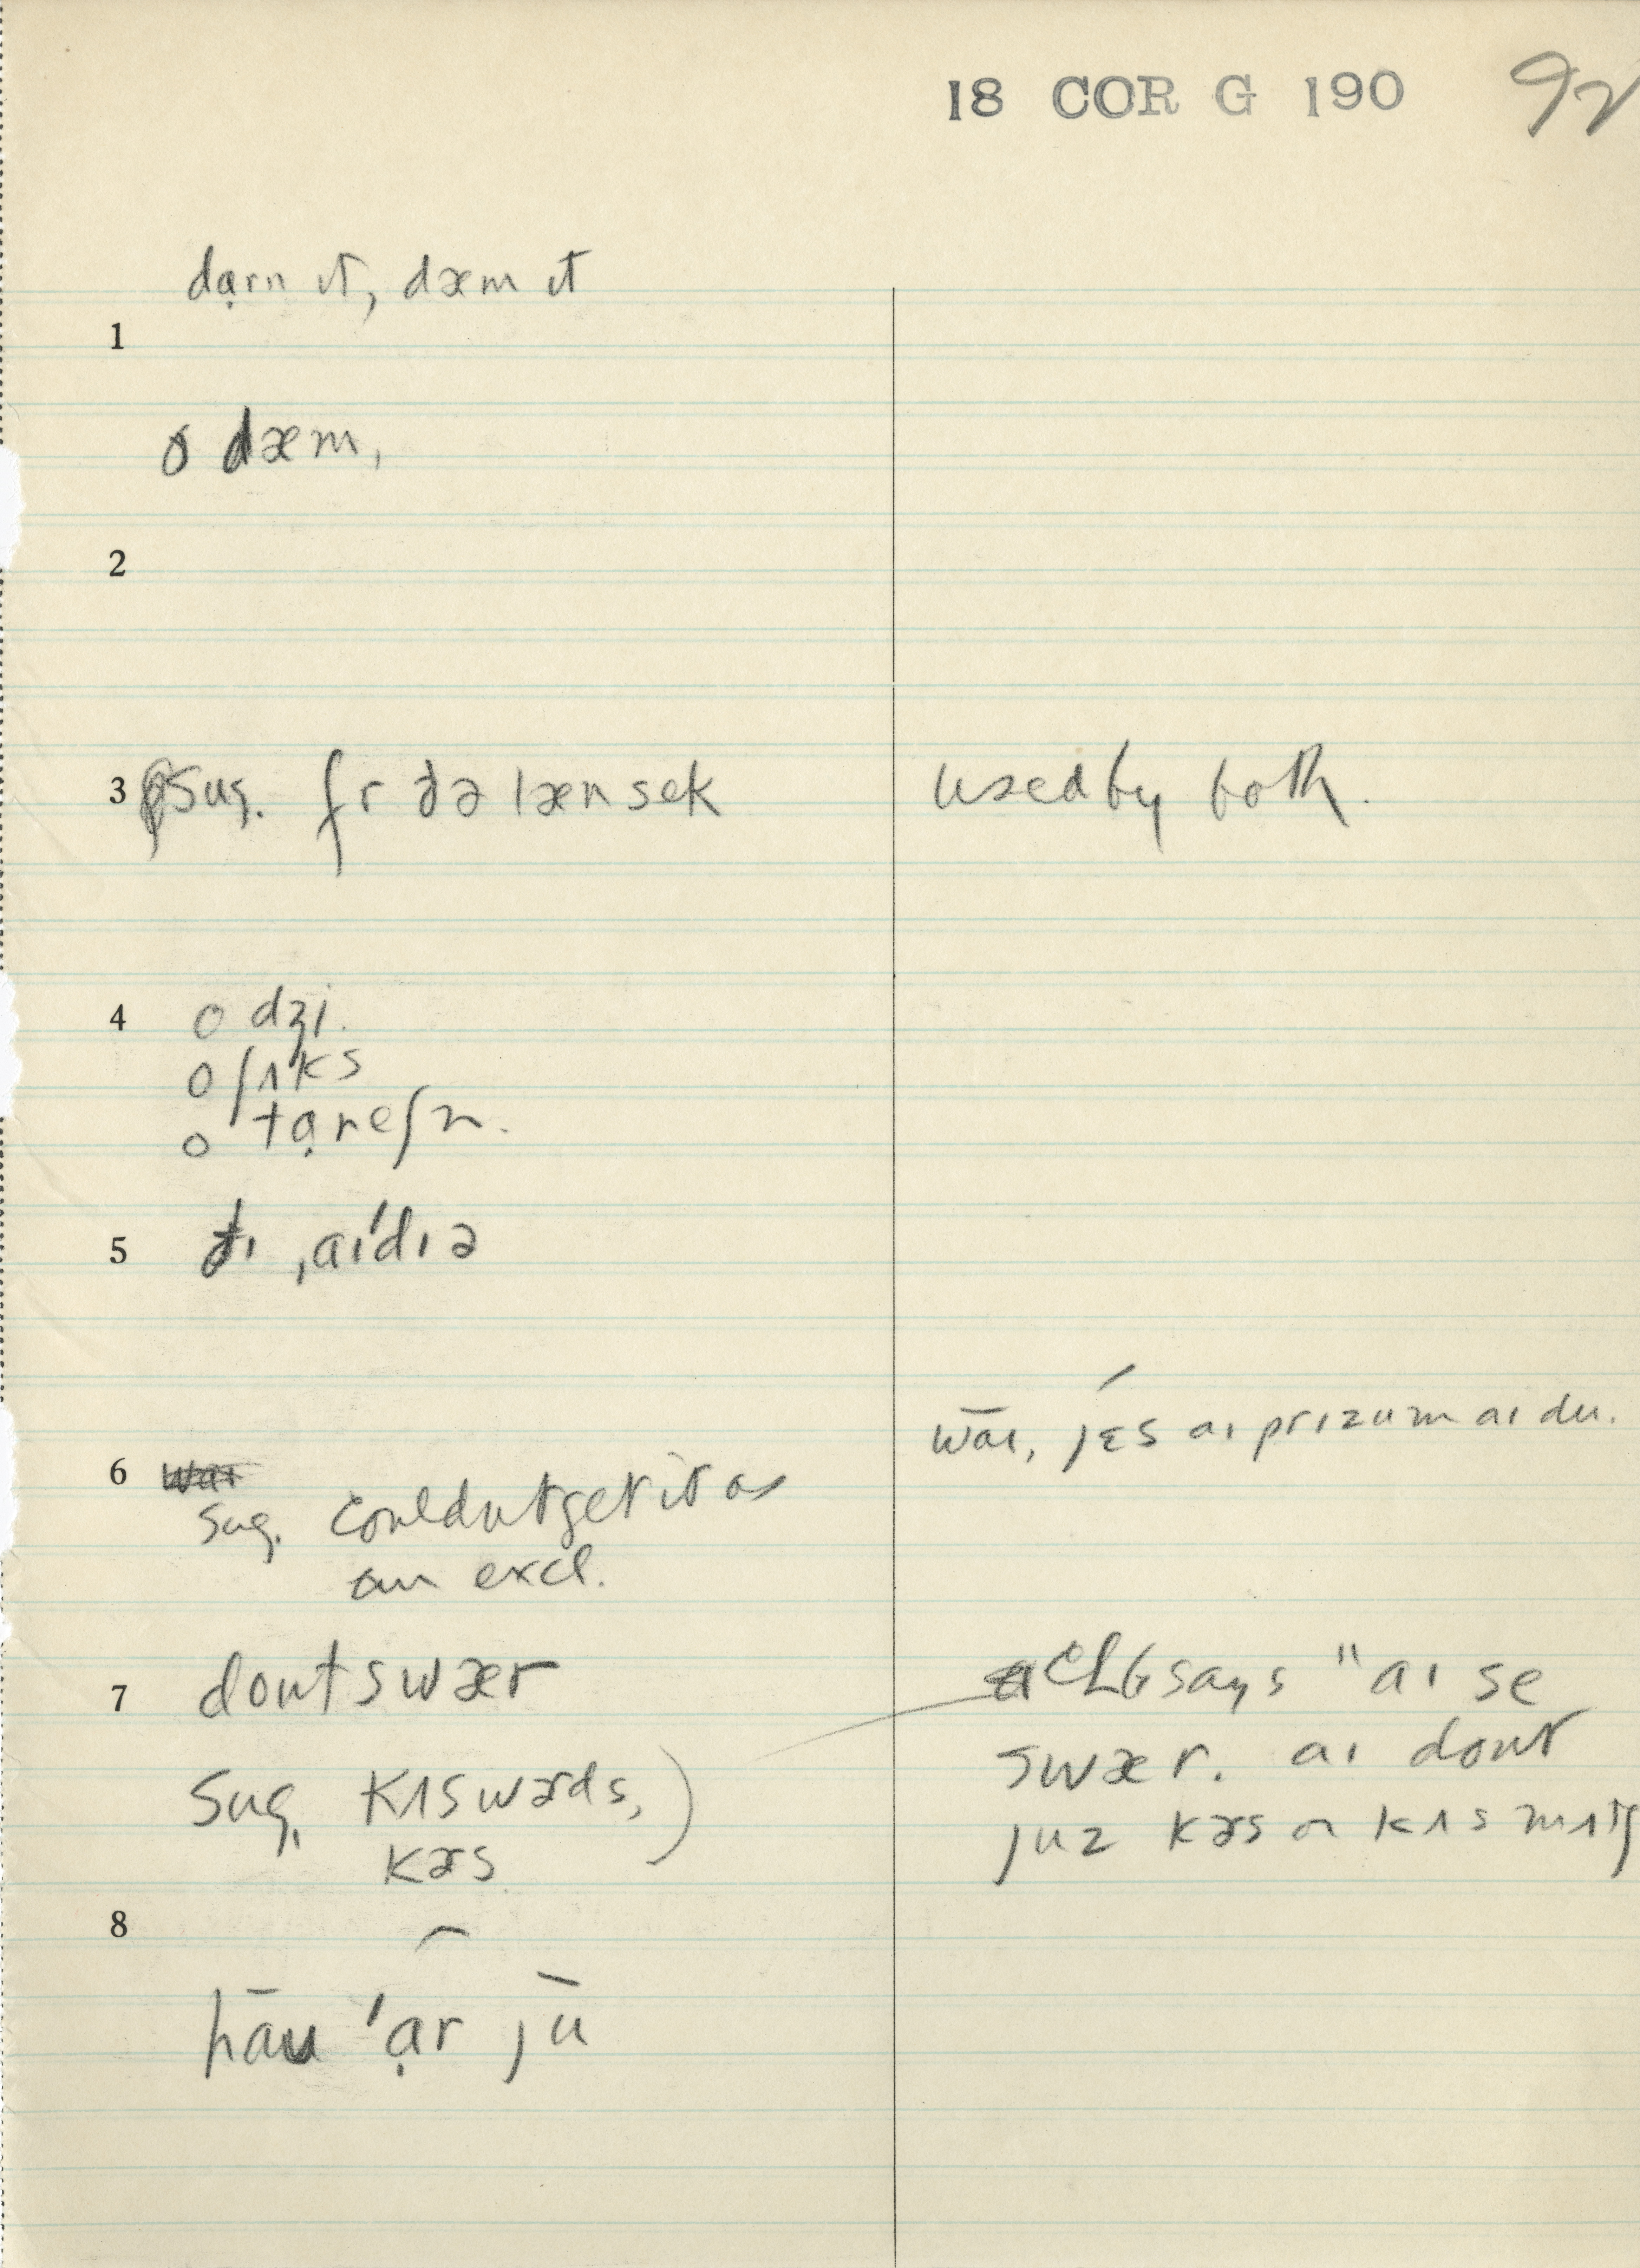 18 COR G 190 92
dạrn ɪt, dæm ɪt
1
o dæm,
2
3 Sug. fr ðə lænsek used by both.
4 o dʒi.
o ʃʌks
o tạreʃn.
5 ðɪ ˌaɪˈdɪə
wāɪ, jɛs aɪ prɪzum aɪ du.
6 waɪ
Sug. Couldnt get it as
an excl.
7 dont swær CLG says "aɪ se
swær. aɪ dont
Sug. kʌswɚds,)
kɚs
juz kɚs or kʌs mʌtʃ
8
hāu ˈạr jū